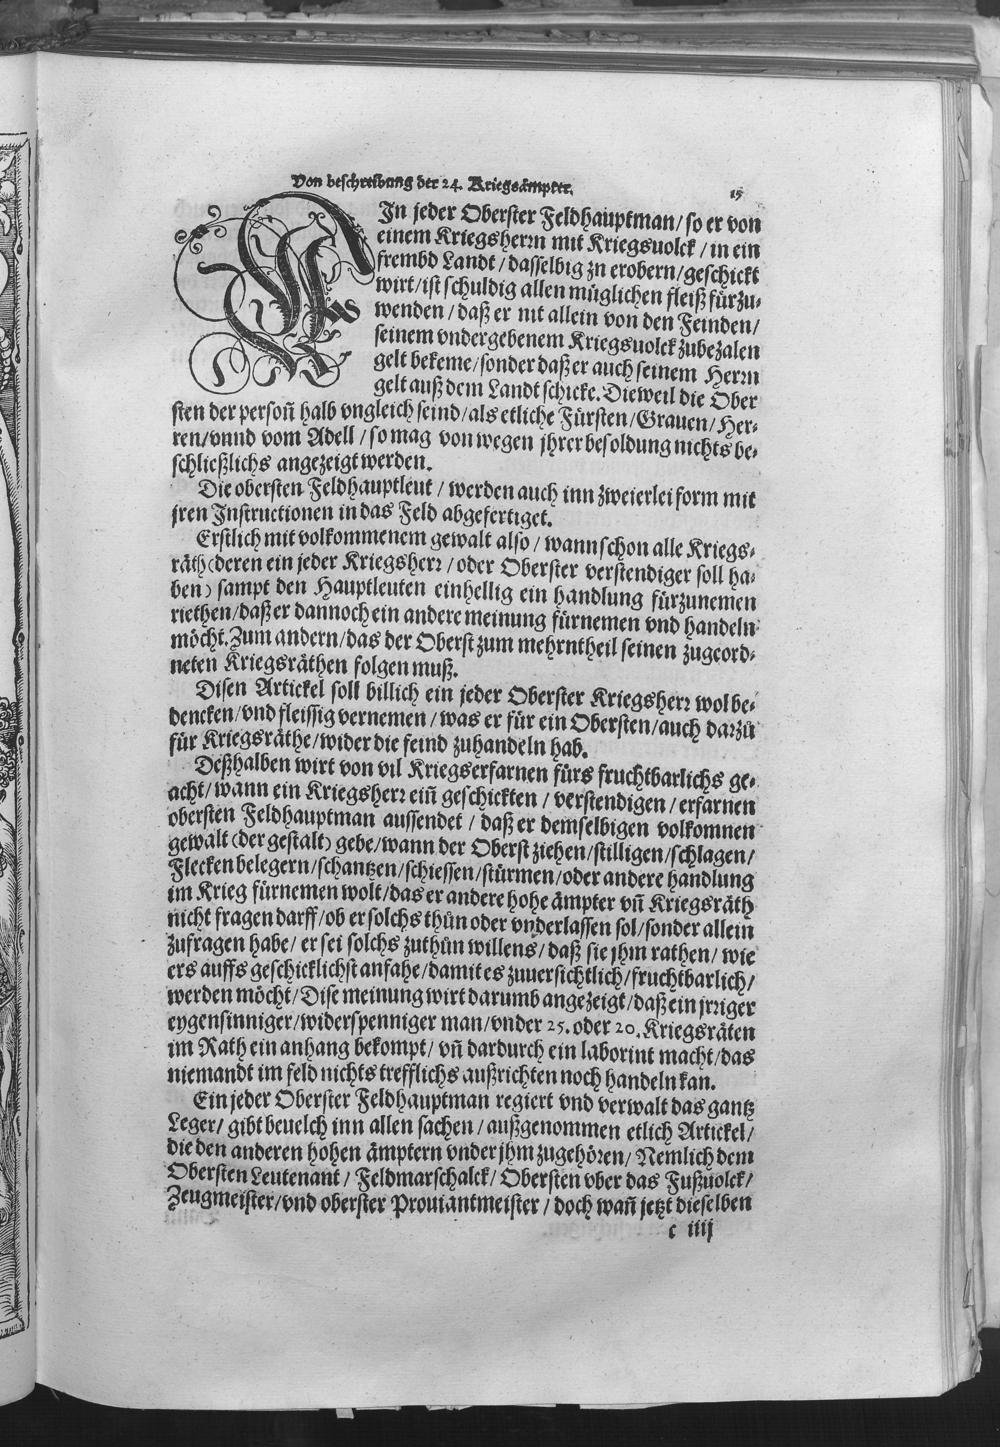 Von beschreibung der 24. Kriegsämpter.
15
EIn jeder Oberster Feldhauptman/so er von
einem Kriegsherrn mit Kriegsuolck/in ein
frembd Landt/dasselbig zu erobern/geschickt
wirt/ist schuldig allen müglichen fleiß fürzu-
wenden/daß er nit allein von den Feinden/
seinem vndergebenem Kriegsuolck zubezalen
gelt bekeme/sonder daß er auch seinem Herrn
gelt auß dem Landt schicke. Dieweil die Ober
sten der persoñ halb vngleich seind/als etliche Fürsten/Grauen/Her-
ren/vnnd vom Adell/so mag von wegen jhrer besoldung nichts be-
schließlichs angezeigt werden.
Die obersten Feldhauptleut/werden auch inn zweierlei form mit
jren Instructionen in das Feld abgefertiget.
Erstlich mit volkommenem gewalt also/wann schon alle Kriegs-
räth (deren ein jeder Kriegsherr/oder Oberster verstendiger soll ha-
ben) sampt den Hauptleuten einhellig ein handlung fürzunemen
riethen/daß er dannoch ein andere meinung fürnemen vnd handeln
möcht. Zum andern/das der Oberst zum mehrntheil seinen zugeord-
neten Kriegsräthen folgen muß.
Disen Artickel soll billich ein jeder Oberster Kriegsherr wol be-
dencken/vnd fleissig vernemen/was er für ein Obersten/auch darzů
für Kriegsräthe/wider die feind zuhandeln hab.
Deßhalben wirt von vil Kriegserfarnen fürs fruchtbarlichs ge-
acht/wann ein Kriegsherr eiñ geschickten/verstendigen/erfarnen
obersten Feldhauptman aussendet/daß er demselbigen volkomnen
gewalt (der gestalt) gebe/wann der Oberst ziehen/stilligen/schlagen/
Flecken belegern/schantzen/schiessen/stürmen/oder andere handlung
im Krieg fürnemen wolt/das er andere hohe ämpter vñ Kriegsräth
nicht fragen darff/ob er solchs thůn oder vnderlassen sol/sonder allein
zufragen habe/er sei solchs zuthůn willens/daß sie jhm rathen/wie
ers auffs geschicklichst anfahe/damit es zuuersichtlich/fruchtbarlich/
werden möcht/Dise meinung wirt darumb angezeigt/daß ein jrriger
eygensinniger/widerspenniger man/vnder 25. oder 20. Kriegsräten
im Rath ein anhang bekompt/vñ dardurch ein laborint macht/das
niemandt im feld nichts trefflichs außrichten noch handeln kan.
Ein jeder Oberster Feldhauptman regiert vnd verwalt das gantz
Leger/gibt beuelch inn allen sachen/außgenommen etlich Artickel/
die den anderen hohen ämptern vnder jhm zugehören/Nemlich dem
Obersten Leutenant/Feldmarschalck/Obersten vber das Fußuolck/
Zeugmeister/vnd oberster Prouiantmeister/doch wañ jetzt dieselben
c iiij